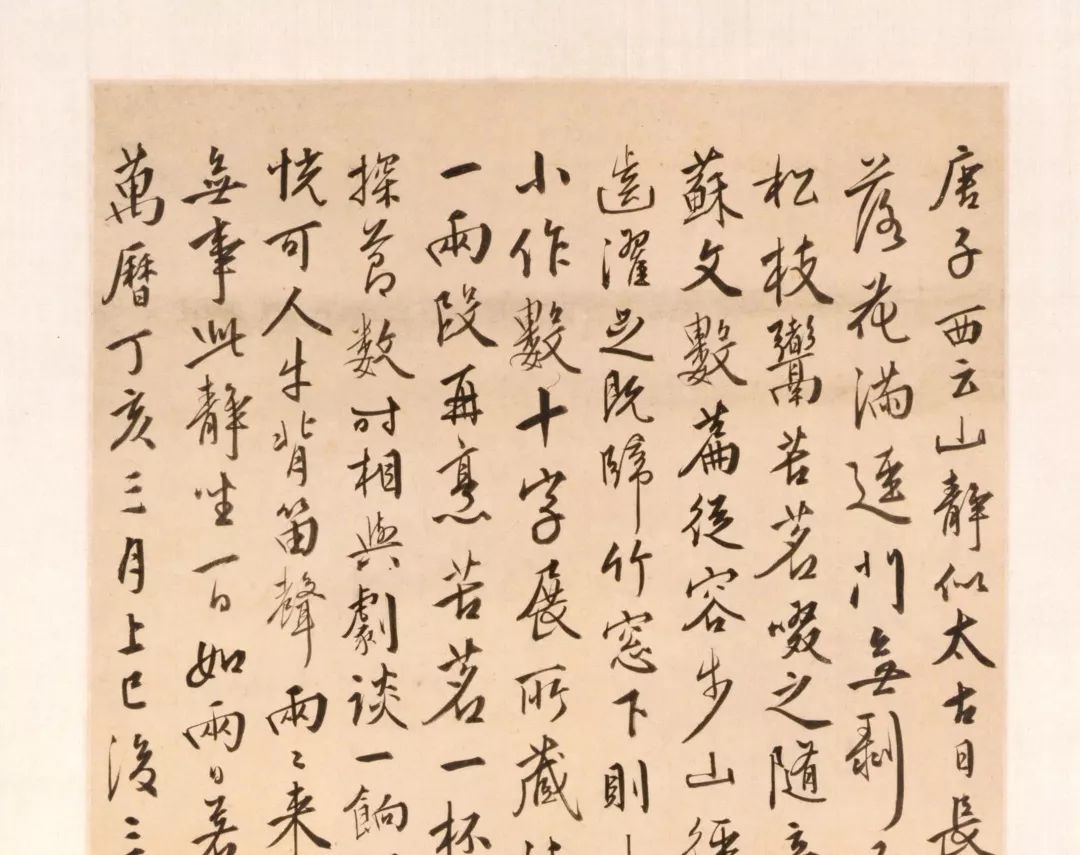 唐子西云山靜似太古日長
落花滿逕門無剥
松枝鬻苦茗啜之隨意
蘇文數篇從容步山徑
齒濯足既歸竹窓下則
小作數十字展所藏法
一兩段再烹苦茗一杯
探節数时相與劇談一餉
恍可人牛背笛聲兩〻来
無事此静坐一日如兩日若
萬曆丁亥三月上巳後二